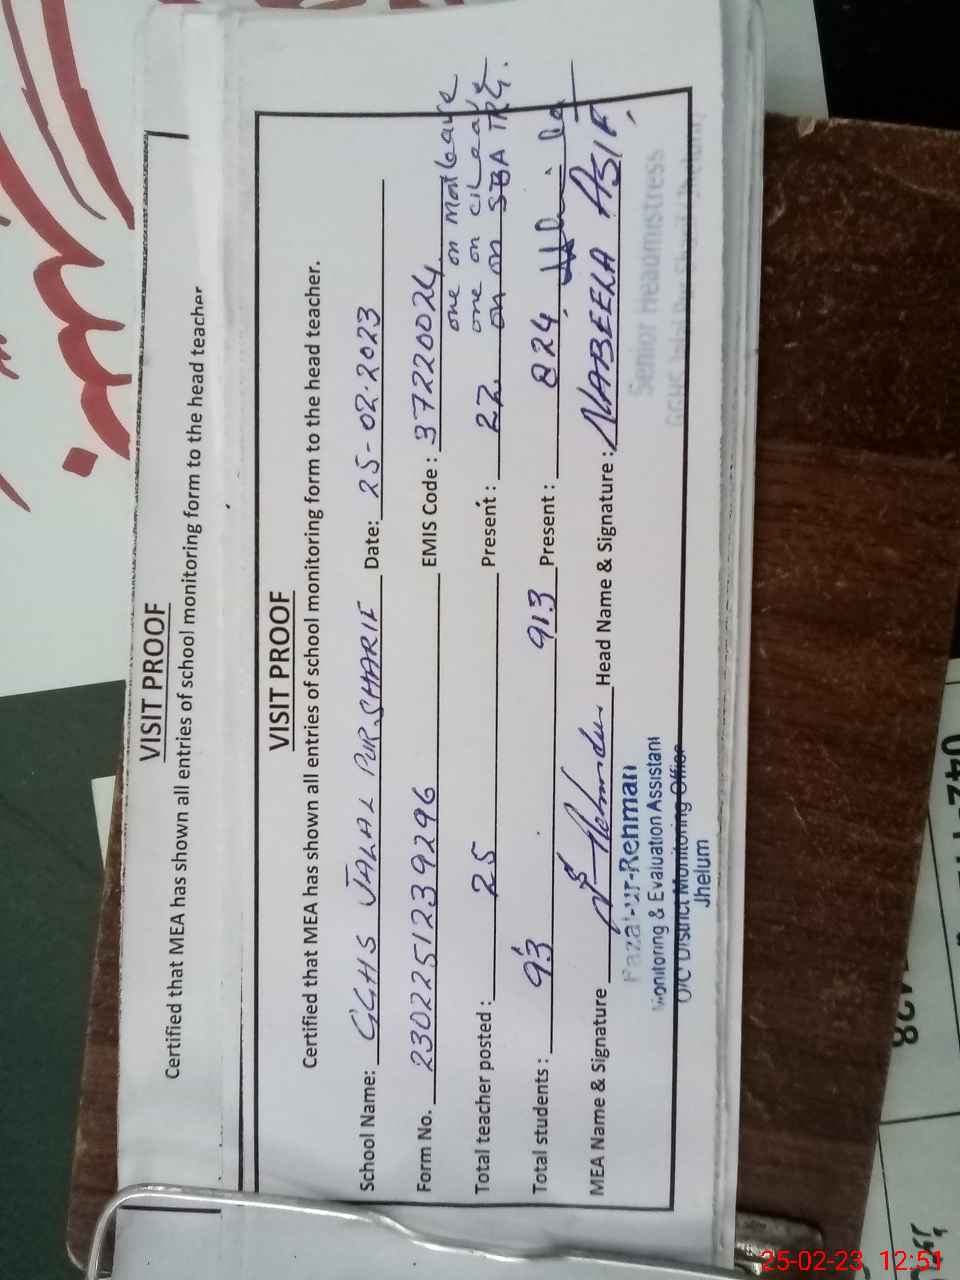 VISIT PROOF
Certified that MEA has shown all entries of school monitoring form to the head teacher
VISIT PROOF
Certified that MEA has shown all entries of school monitoring form to the head teacher.
School Name: GGHS JALAL PUR SHARIF Date: 25-02-2023
Form No. 2302251239296 EMIS Code: 37220024
one on Mat leave
one on c/Leave
Total teacher posted: 25 Present: 22 on on SBA TRG.
Total students: 93 913 Present: 824
MEA Name & Signature Head Name & Signature: NABEELA ASIF
Fazal-ur-Rehman
Monitoring & Evaluation Assistant
O/O District Monitoring Office
Jhelum
Senior Headmistress
25-02-23 12:51